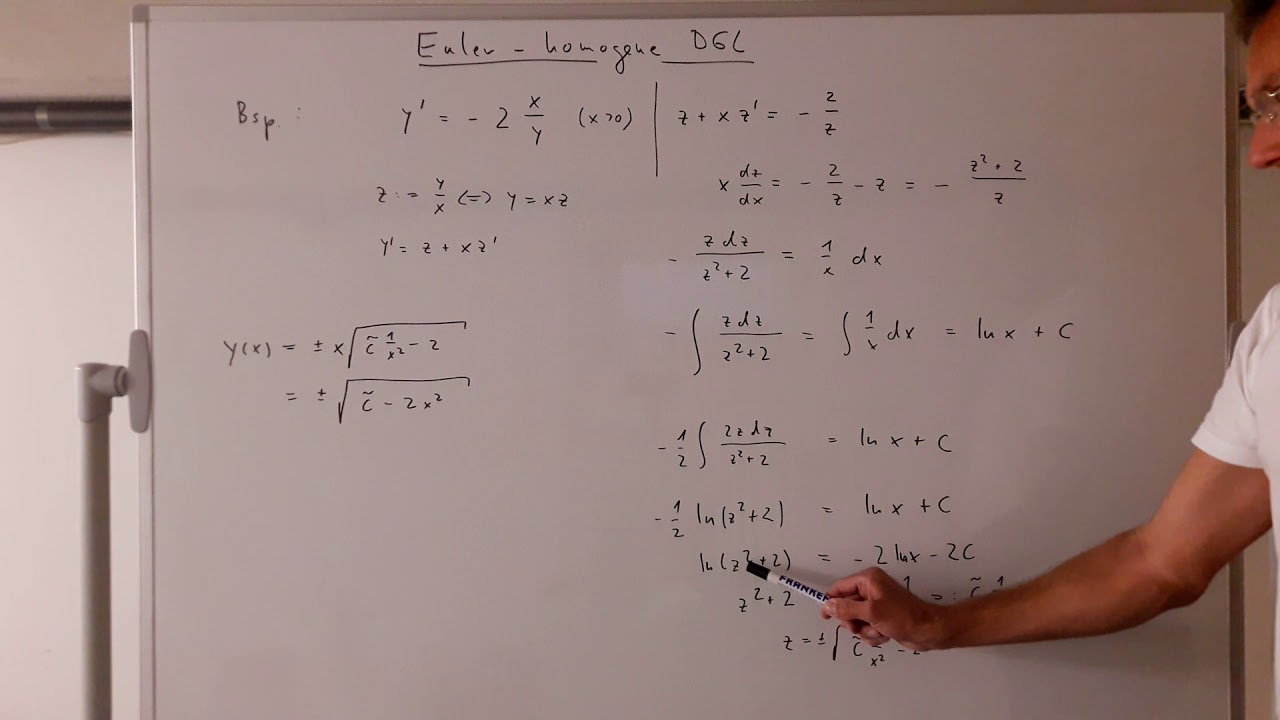 Euler - homogene DGL
Bsp.: y' = - 2 x/y (x>0)
z := y/x <=> y = xz
y' = z + xz'
y(x) = ± x√(c̃ 1/x² - 2)
= ± √(c̃ - 2x²)
z + x z' = - 2/z
x dz/dx = - 2/z - z = - (z² + 2)/z
- z dz/(z² + 2) = 1/x dx
- ∫ z dz/(z² + 2) = ∫ 1/x dx = ln x + C
- 1/2 ∫ 2z dz/(z² + 2) = ln x + C
- 1/2 ln(z² + 2) = ln x + C
ln(z² + 2) = - 2 ln x - 2C
z² + 2 =: c̃ 1
z = ± √(c̃ 1/x² - 2
FRANKEN